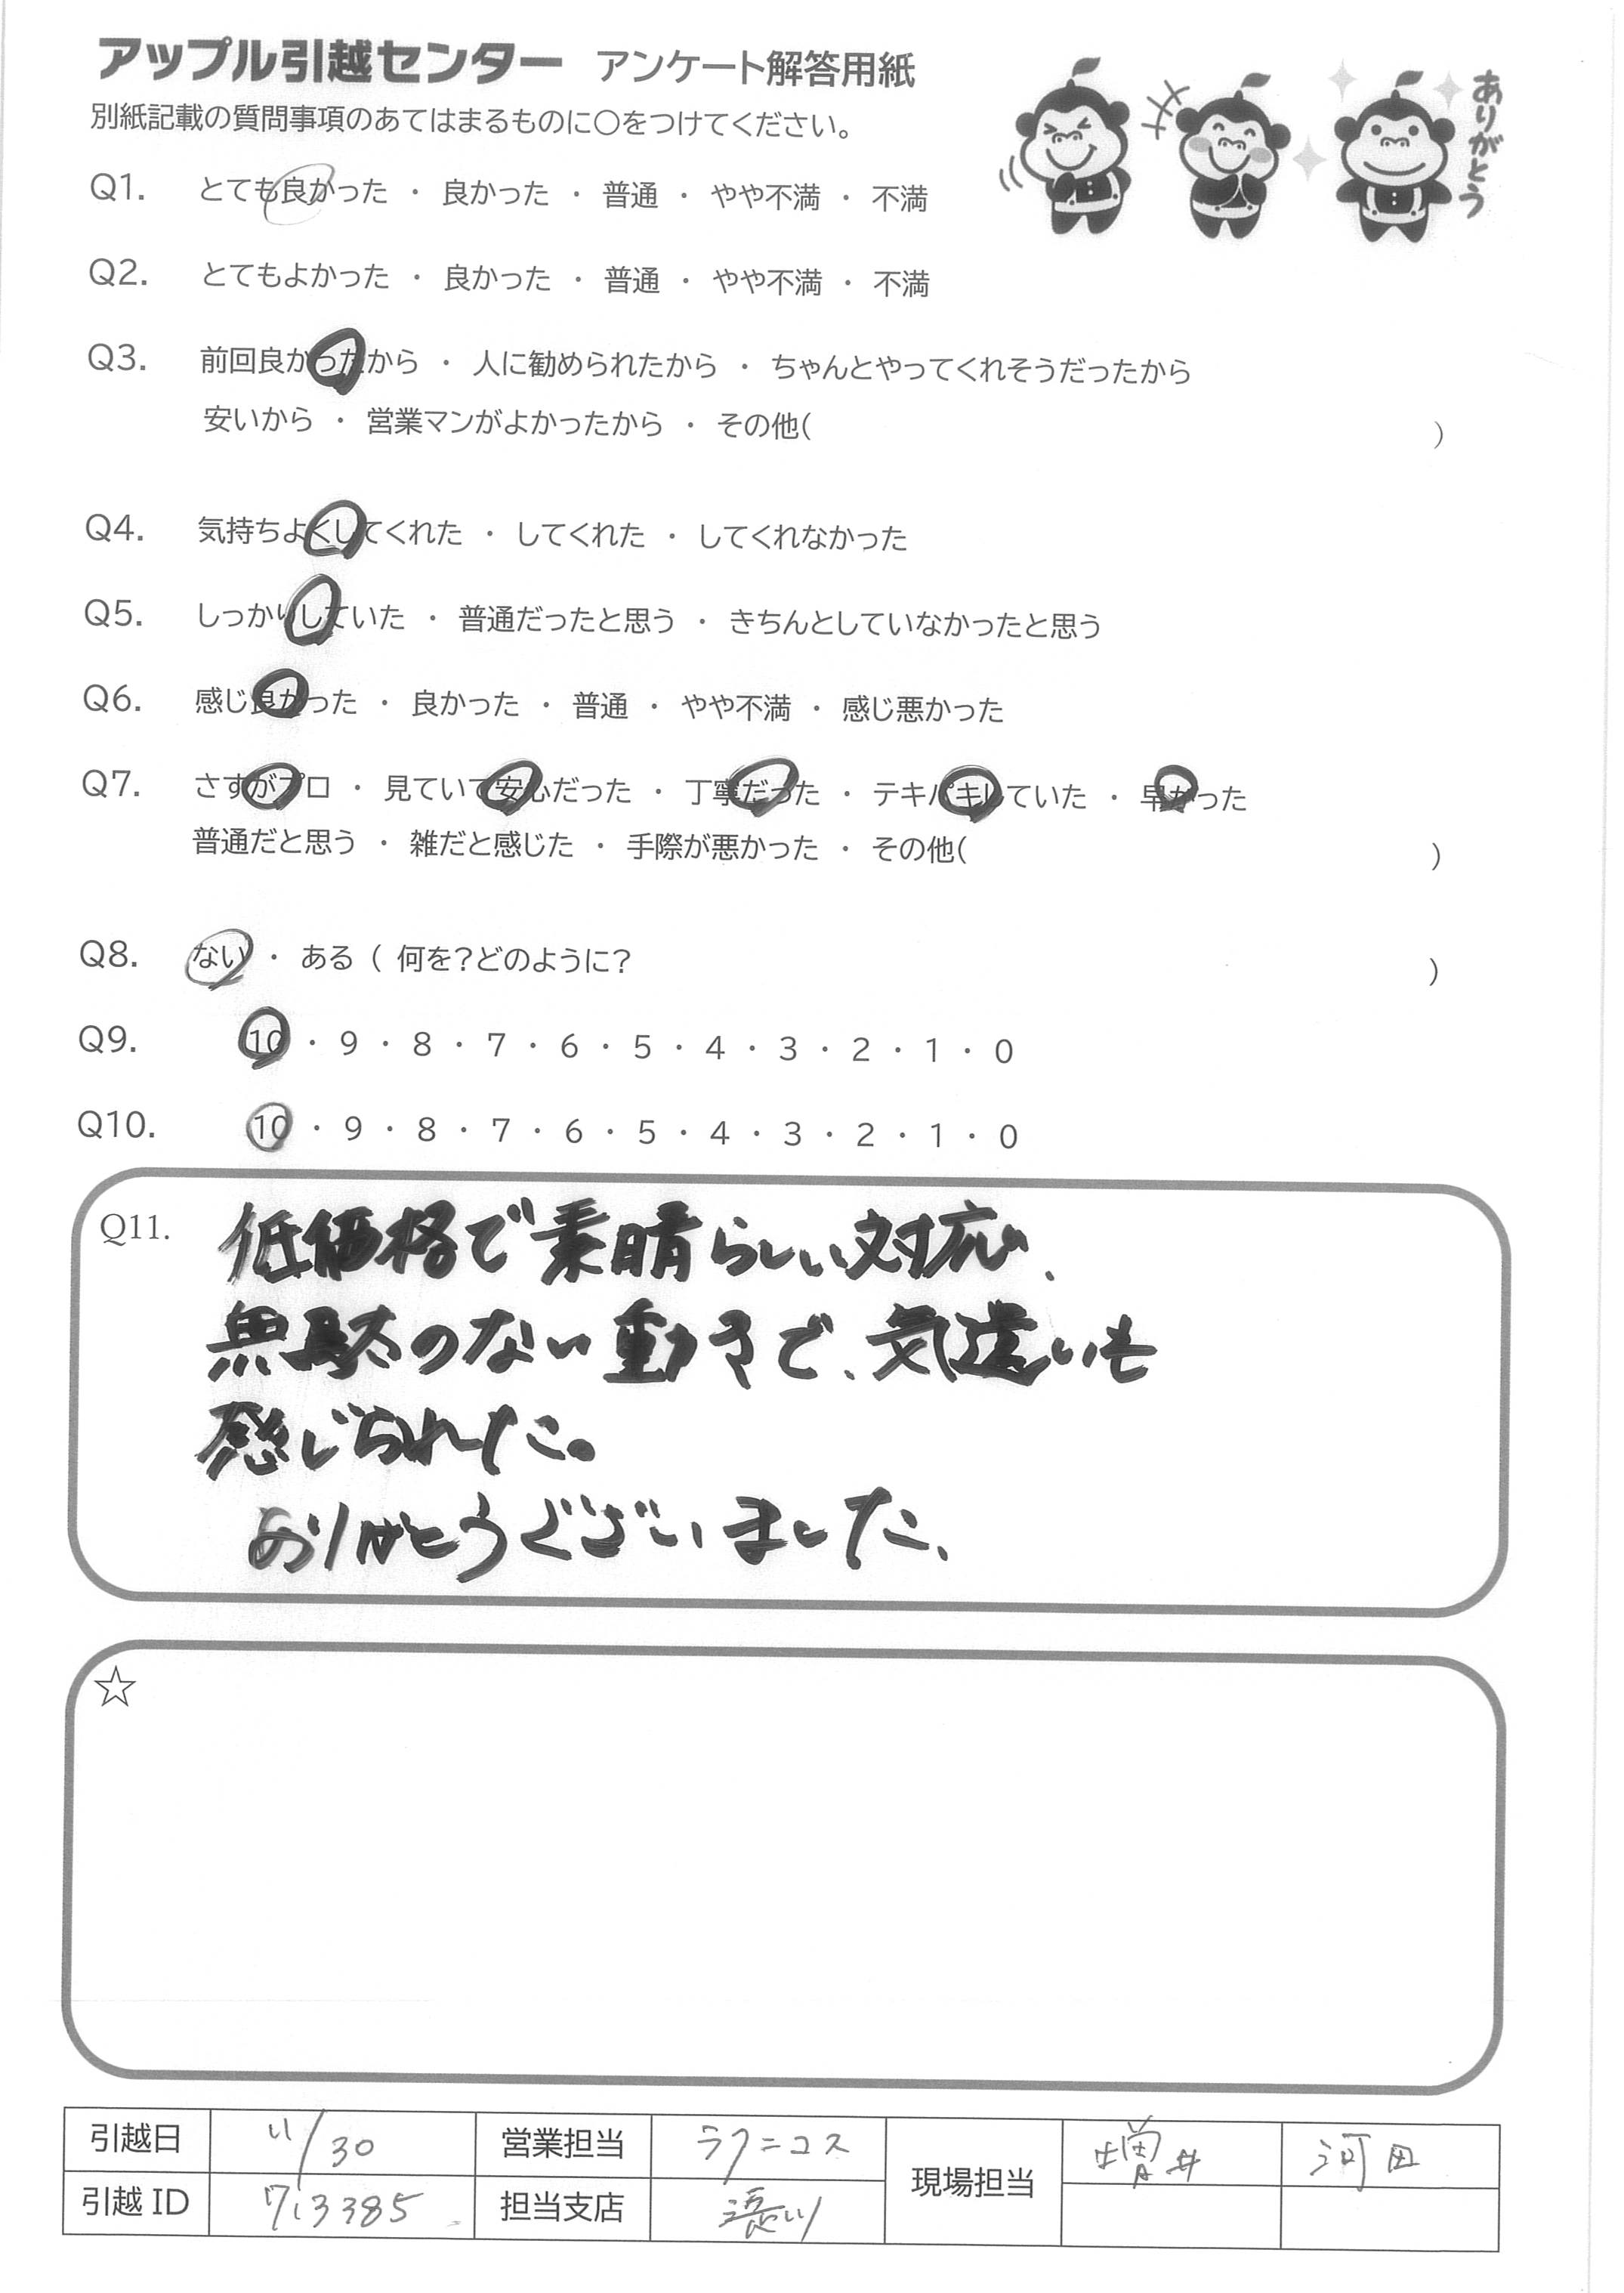 アップル引越センター アンケート解答用紙
別紙記載の質問事項のあてはまるものに○をつけてください。
ありがとう
Q1. とても良かった ・ 良かった ・ 普通 ・ やや不満 ・ 不満
Q2. とてもよかった ・ 良かった ・ 普通 ・ やや不満 ・ 不満
Q3. 前回良かったから ・ 人に勧められたから ・ ちゃんとやってくれそうだったから
安いから ・ 営業マンがよかったから ・ その他( )
Q4. 気持ちよくしてくれた ・ してくれた ・ してくれなかった
Q5. しっかりしていた ・ 普通だったと思う ・ きちんとしていなかったと思う
Q6. 感じ良かった ・ 良かった ・ 普通 ・ やや不満 ・ 感じ悪かった
Q7. さすがプロ ・ 見ていて安心だった ・ 丁寧だった ・ テキパキしていた ・ 早かった
普通だと思う ・ 雑だと感じた ・ 手際が悪かった ・ その他( )
Q8. ない ・ ある ( 何を?どのように? )
Q9. 10 ・ 9 ・ 8 ・ 7 ・ 6 ・ 5 ・ 4 ・ 3 ・ 2 ・ 1 ・ 0
Q10. 10 ・ 9 ・ 8 ・ 7 ・ 6 ・ 5 ・ 4 ・ 3 ・ 2 ・ 1 ・ 0
Q11. 低価格で素晴らしい対応、
無駄のない動きで、気遣いも
感じられた。
ありがとうございました、
☆
引越日 11/30 営業担当 ラクニコス 現場担当 増井 河田
引越ID 713385 担当支店